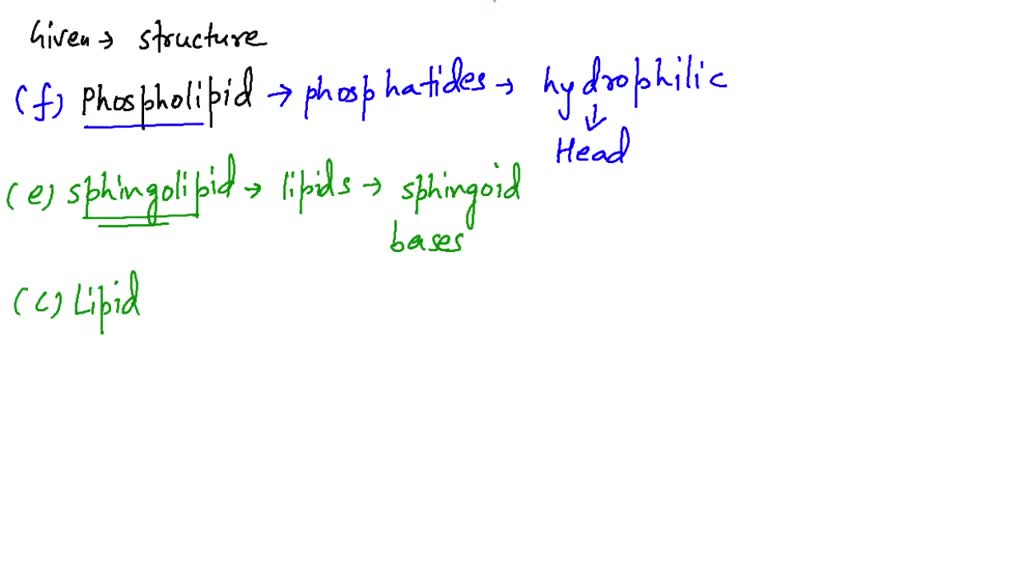 Given → structure
(f) Phospholipid → phosphatides → hydrophilic
↓
Head
(e) sphingolipid → lipids → sphingoid
bases
(c) Lipid